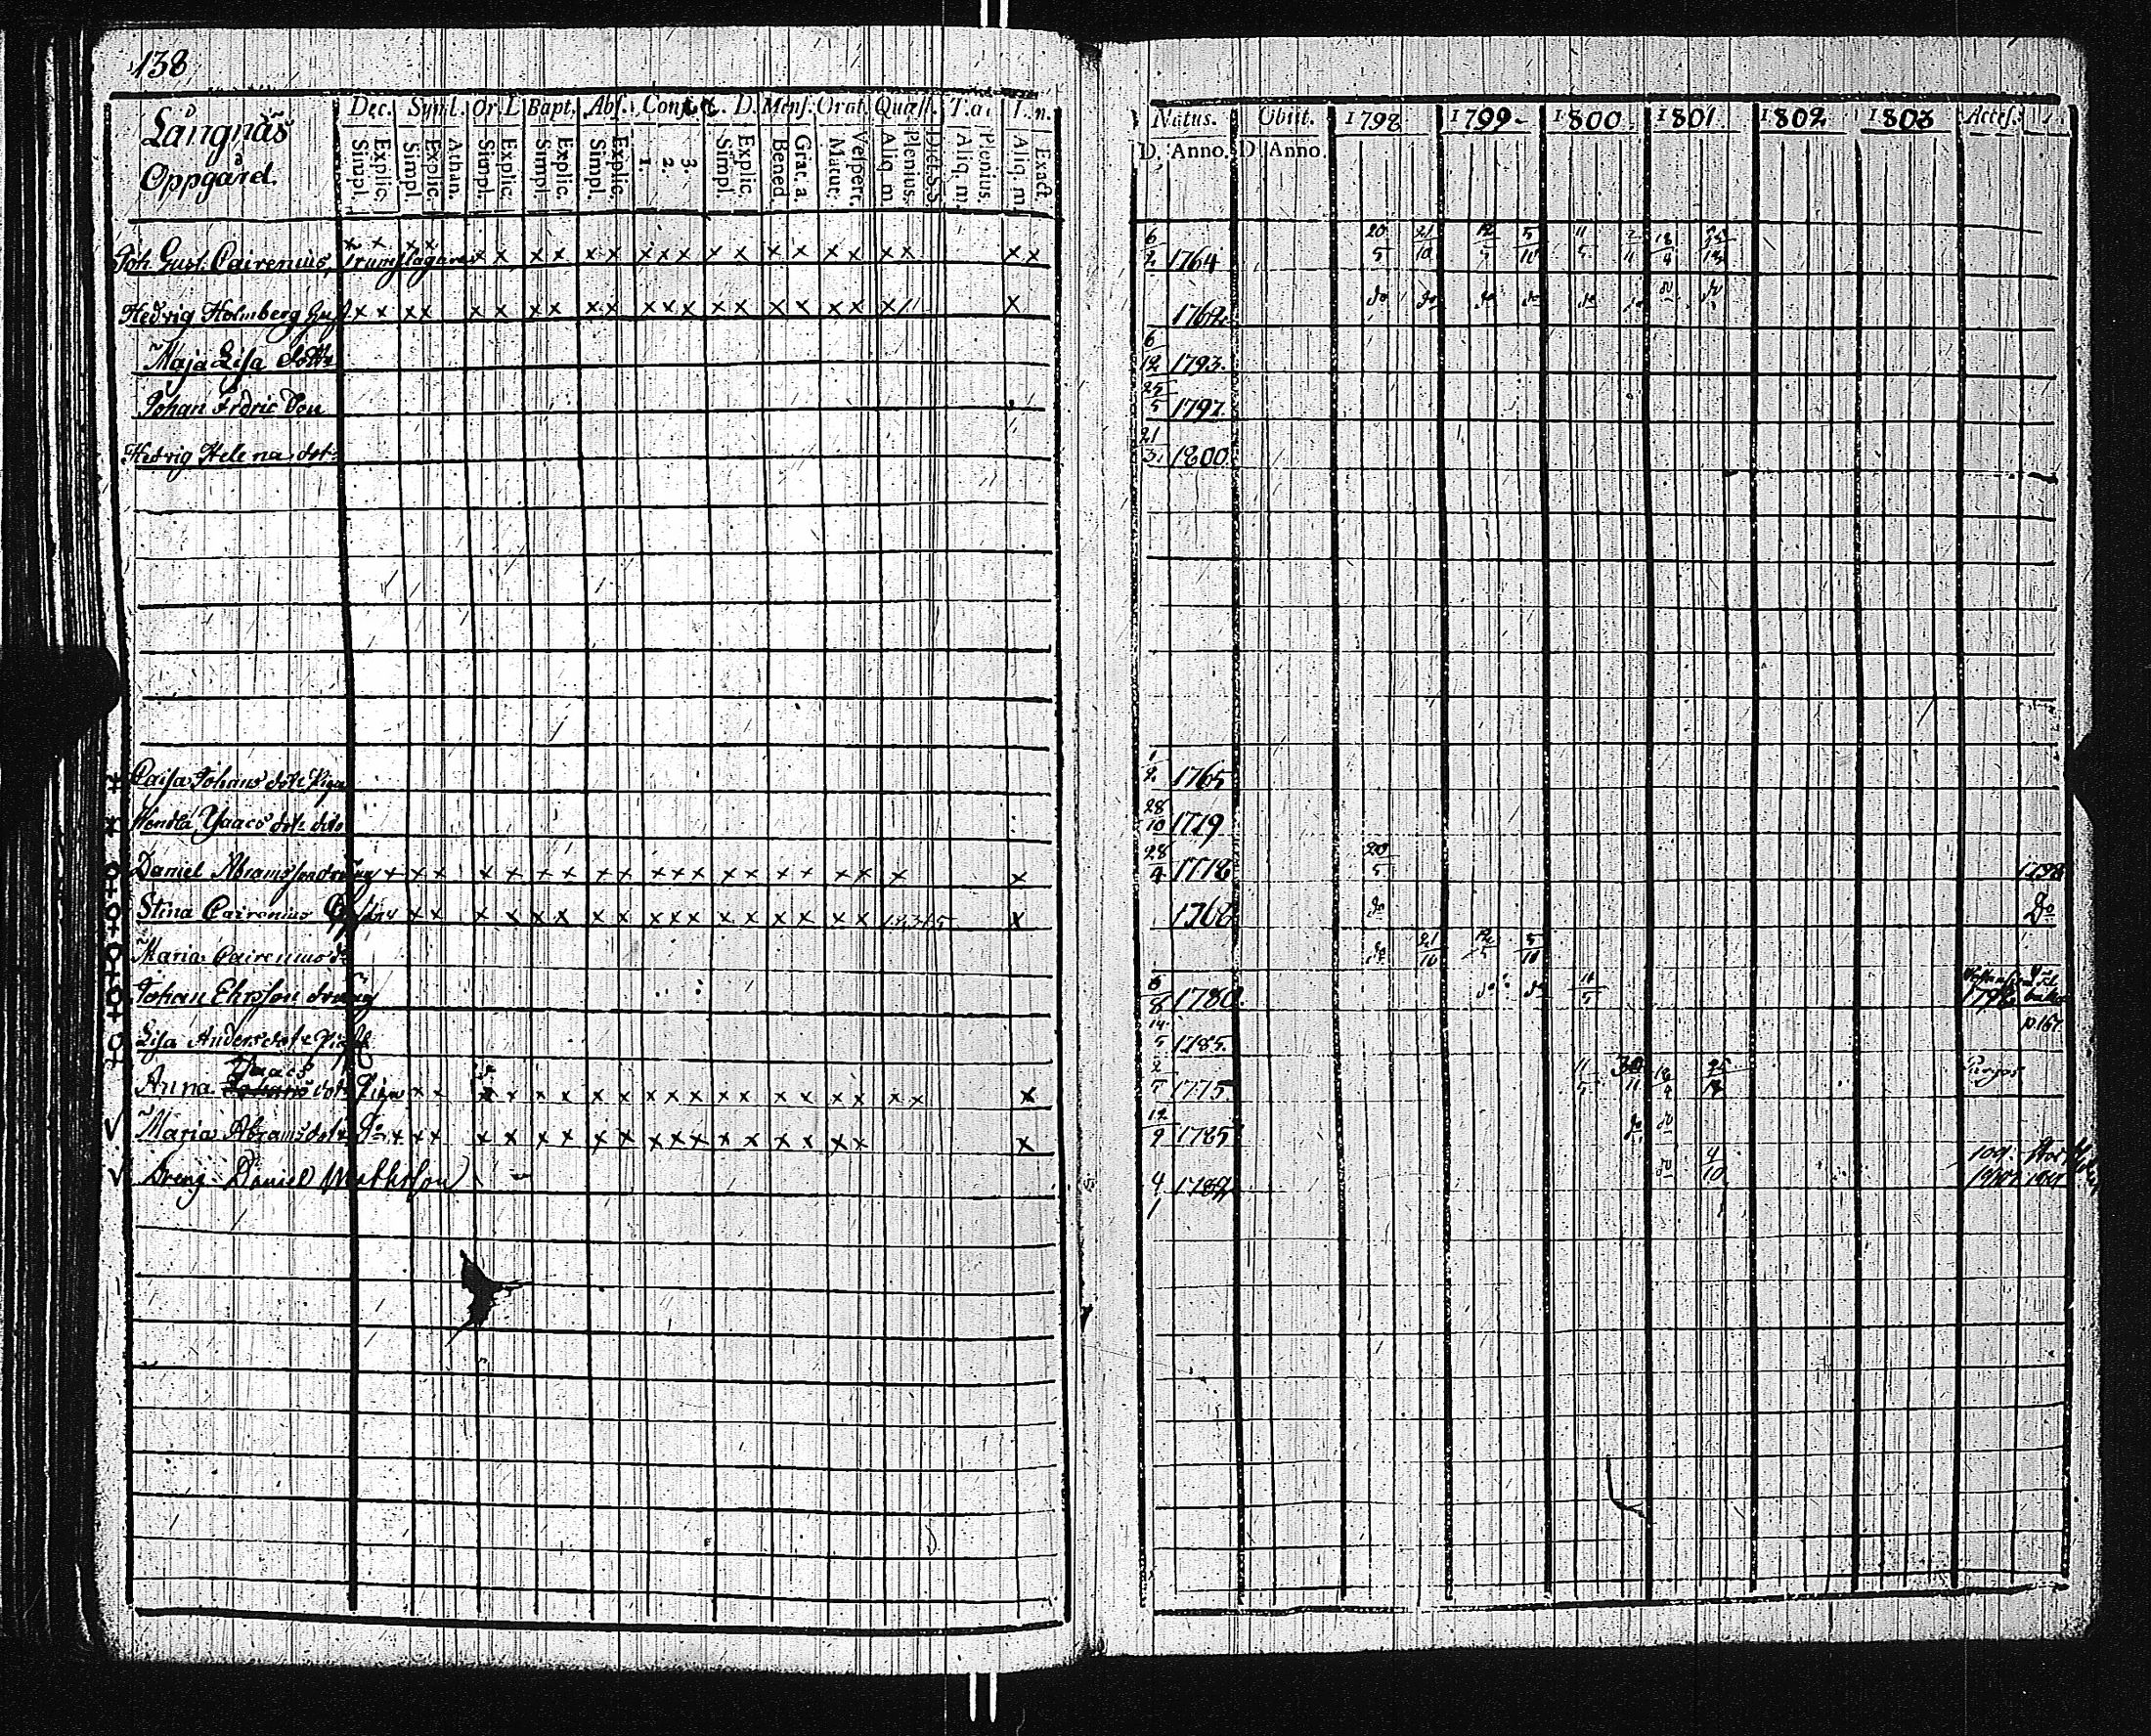 138
Långnäs
Oppgård.
Dec. Symb. Or. D. Bapt. Abs. Conf. C. D. Mens. Orat. Quæst. T. a.
Simpl. Explic. Simpl. Explic. Athan. Simpl. Explic. Simpl. Explic. Simpl. Explic. 1. 2. 3. Simpl. Explic. Bened. Grat. a. Matut. Vespert. Aliq. m. Plenius. Dict. S.S. Aliq. m. Plenius. Aliq. m. Exact.
Natus. Obiit. 1798 1799 1800 1801 1802 1803 Acces.
D. Anno. D Anno.
Joh. Gust. Cairenius, Trumslagare x x x x x x x x x x x x x x x x x x x x x x x 6/2 1764 20/5 21/10 12/5 5/10 11/5 2/11 18/4
Hedvig Holmberg Hust x x x x x x x x x x x x x x x x x x x x 176 do do do do do do do do
Maja Lisa dottr 6/12 1793.
Johan Fredric Son 25/5 1797
Hedvig Helena dotr 21/3 1800
Caisa Johans dotr Piga 1/2 1765
Yaacs dotr dito 28/10 1719
Daniel Abramsson dräng x x x x x x x x x x x x x x x x x x x 28/4 1778 20/5 1798
Stina Cairenius x x x x x x x x x x x x x x x x x 1.2.3.4.5 x 1768 do Do
Maria Cairenius do do 21/10 12/5 5/10
Johan Ehrsson dräng 6/8 1780 do do 11/5
p 167
Lisa Andersdotr Piga 14/5 1785.
Yaacs
Anna Johans dotr Piga x x x x x x x x x x x x x x x x x x x 2/7 1775 11/5 30/11 18/4
Maria Abramsdotr Do x x x x x x x x x x x x x x x x x x 12/9 1785 do do
Dreng Daniel Mattsson 4/1 178 do 4/10